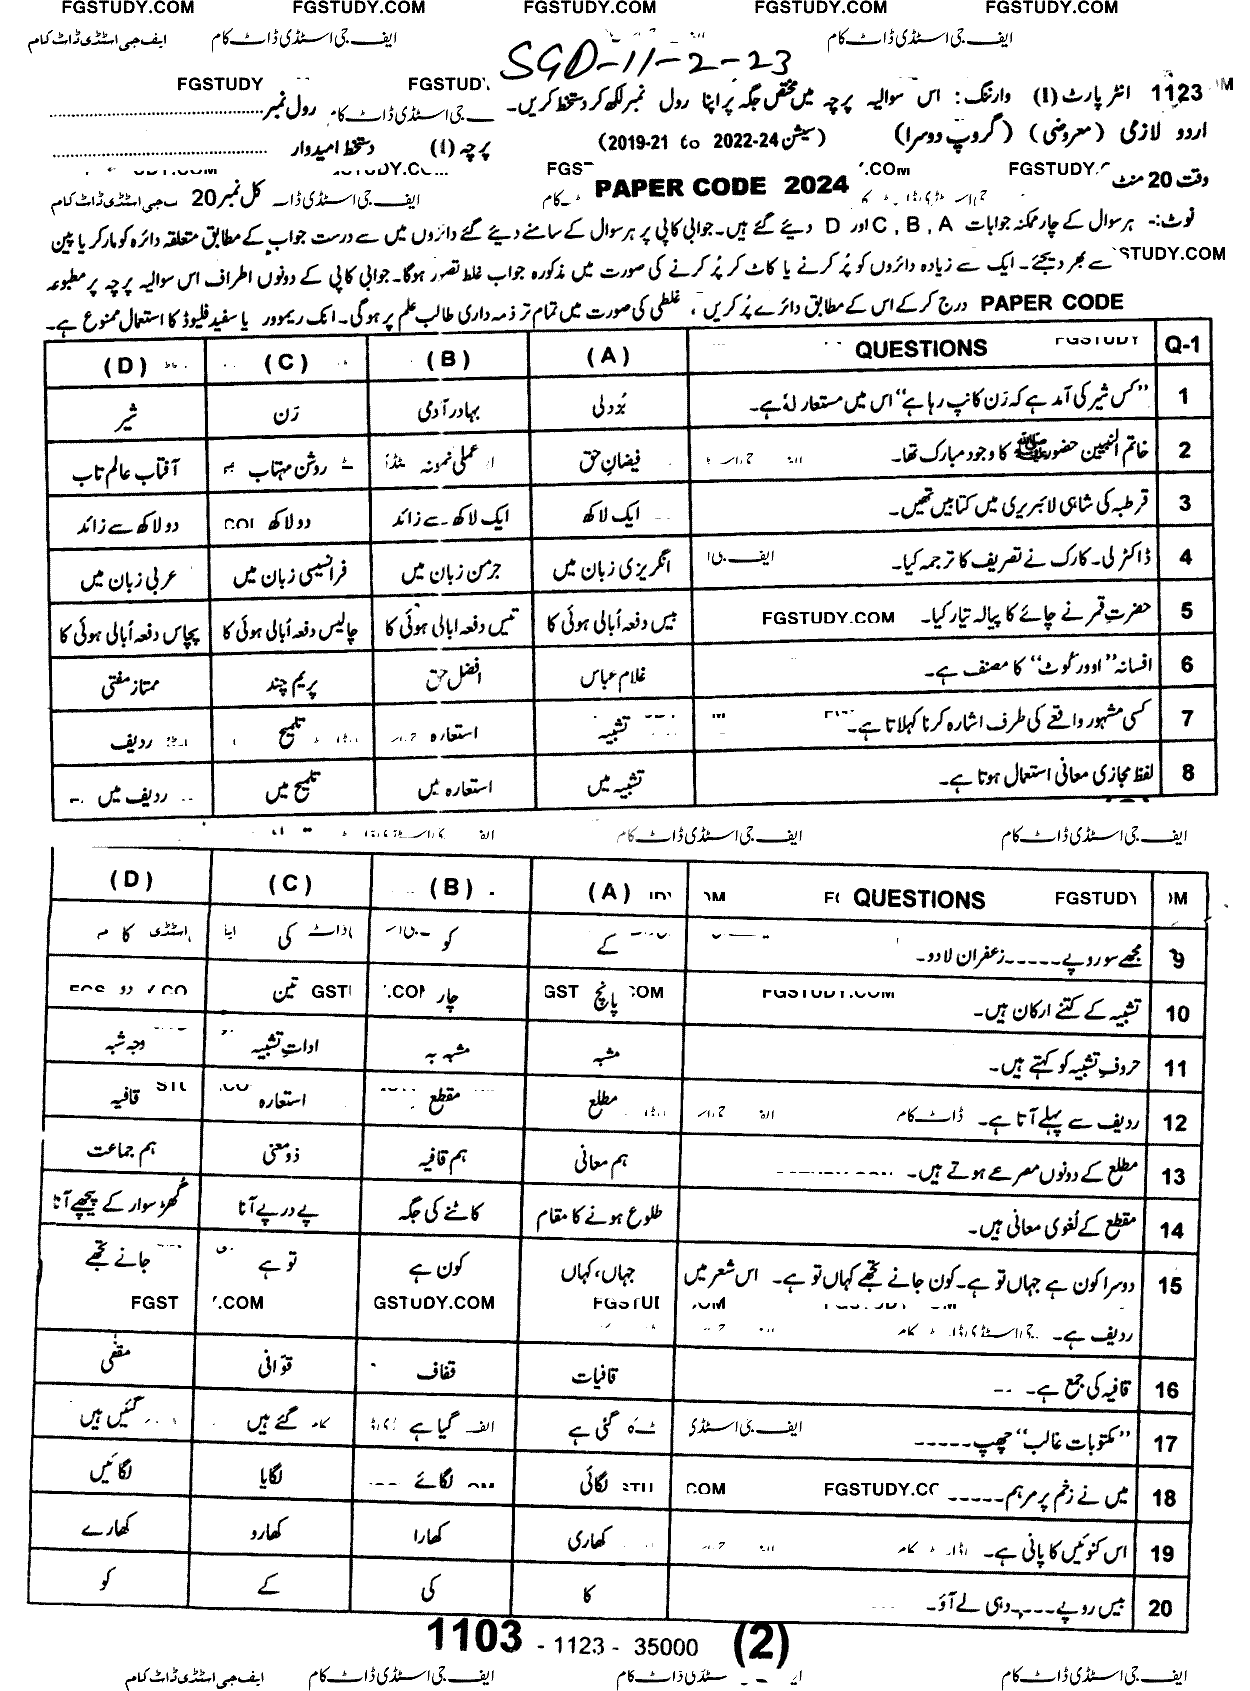 FGSTUDY.COM FGSTUDY.COM FGSTUDY.COM FGSTUDY.COM FGSTUDY.COM
ایف جی اسٹڈی ڈاٹ کام ایف جی اسٹڈی ڈاٹ کام ایف جی اسٹڈی ڈاٹ کام
SGD-11-2-23
FGSTUDY FGSTUD
1123 انٹر پارٹ (I) وارننگ: اس سوالیہ پرچہ میں مختص جگہ پر اپنا رول نمبر لکھ کر دستخط کریں۔ رول نمبر
اردو لازمی (معروضی) (گروپ دوسرا) (سیشن 2022-24 to 2019-21) پرچہ (I) دستخط امیدوار
وقت 20 منٹ PAPER CODE 2024 کل نمبر 20
نوٹ:۔ ہر سوال کے چار ممکنہ جوابات A ,B ,C اور D دیئے گئے ہیں۔ جوابی کاپی پر ہر سوال کے سامنے دیئے گئے دائروں میں سے درست جواب کے مطابق متعلقہ دائرہ کو مارکر یا پین
سے بھر دیجئے۔ ایک سے زیادہ دائروں کو پُر کرنے یا کاٹ کر پُر کرنے کی صورت میں مذکورہ جواب غلط تصور ہوگا۔ جوابی کاپی کے دونوں اطراف اس سوالیہ پرچہ پر مطبوعہ
PAPER CODE درج کر کے اس کے مطابق دائرے پُر کریں، غلطی کی صورت میں تمام تر ذمہ داری طالب علم پر ہوگی۔ انک ریموور یا سفید فلیوڈ کا استعمال ممنوع ہے۔
Q-1 QUESTIONS (A) (B) (C) (D)
1 "کس شیر کی آمد ہے کہ رَن کانپ رہا ہے" اس میں مستعار لہٗ ہے۔ بُزدلی بہادر آدمی رَن شیر
2 خاتم النبیین حضور ﷺ کا وجود مبارک تھا۔ فیضانِ حق عملی نمونہ روشن مہتاب آفتاب عالم تاب
3 قرطبہ کی شاہی لائبریری میں کتابیں تھیں۔ ایک لاکھ ایک لاکھ سے زائد دو لاکھ دو لاکھ سے زائد
4 ڈاکٹر لی۔ کارک نے تصریف کا ترجمہ کیا۔ انگریزی زبان میں جرمن زبان میں فرانسیسی زبان میں عربی زبان میں
5 حضرتِ قمر نے چائے کا پیالہ تیار کیا۔ FGSTUDY.COM بیس دفعہ اُبالی ہوئی کا تیس دفعہ ابالی ہوئی کا چالیس دفعہ اُبالی ہوئی کا پچاس دفعہ اُبالی ہوئی کا
6 افسانہ "اوورکوٹ" کا مصنف ہے۔ غلام عباس افضل حق پریم چند ممتاز مفتی
7 کسی مشہور واقعے کی طرف اشارہ کرنا کہلاتا ہے۔ تشبیہ استعارہ تلمیح ردیف
8 لفظ مجازی معانی استعمال ہوتا ہے۔ تشبیہ میں استعارہ میں تلمیح میں ردیف میں
ایف جی اسٹڈی ڈاٹ کام ایف جی اسٹڈی ڈاٹ کام
QUESTIONS FGSTUDY (A) (B) (C) (D)
9 مجھے سو روپے۔۔۔۔۔زعفران لا دو۔ کے کو کی کا
10 تشبیہ کے کتنے ارکان ہیں۔ پانچ چار تین دو
11 حروفِ تشبیہ کو کہتے ہیں۔ مشبہ مشبہ بہ اداتِ تشبیہ وجہ شبہ
12 ردیف سے پہلے آتا ہے۔ مطلع مقطع استعارہ قافیہ
13 مطلع کے دونوں مصرعے ہوتے ہیں۔ ہم معانی ہم قافیہ ذو معنی ہم جماعت
14 مقطع کے لُغوی معانی ہیں۔ طلوع ہونے کا مقام کاٹنے کی جگہ پے در پے آنا گھڑ سوار کے پیچھے آنا
15 دوسرا کون ہے جہاں تو ہے۔ کون جانے تجھے کہاں تو ہے۔ اس شعر میں جہاں، کہاں کون ہے تو ہے جانے تجھے
ردیف ہے۔
16 قافیہ کی جمع ہے۔ قافیات قفاف قوافی مقفٰی
17 "مکتوبات غالب" چھپ۔۔۔۔۔ گئی ہے گیا ہے گئے ہیں گئیں ہیں
18 میں نے زخم پر مرہم۔۔۔۔۔ لگائی لگائے لگایا لگائیں
19 اس کنوئیں کا پانی ہے۔ کھاری کھارا کھارو کھارے
20 بیس روپے۔۔۔۔۔دہی لے آؤ۔ کا کی کے کو
1103 - 1123 - 35000 (2)
ایف جی اسٹڈی ڈاٹ کام ایف جی اسٹڈی ڈاٹ کام ایف جی اسٹڈی ڈاٹ کام